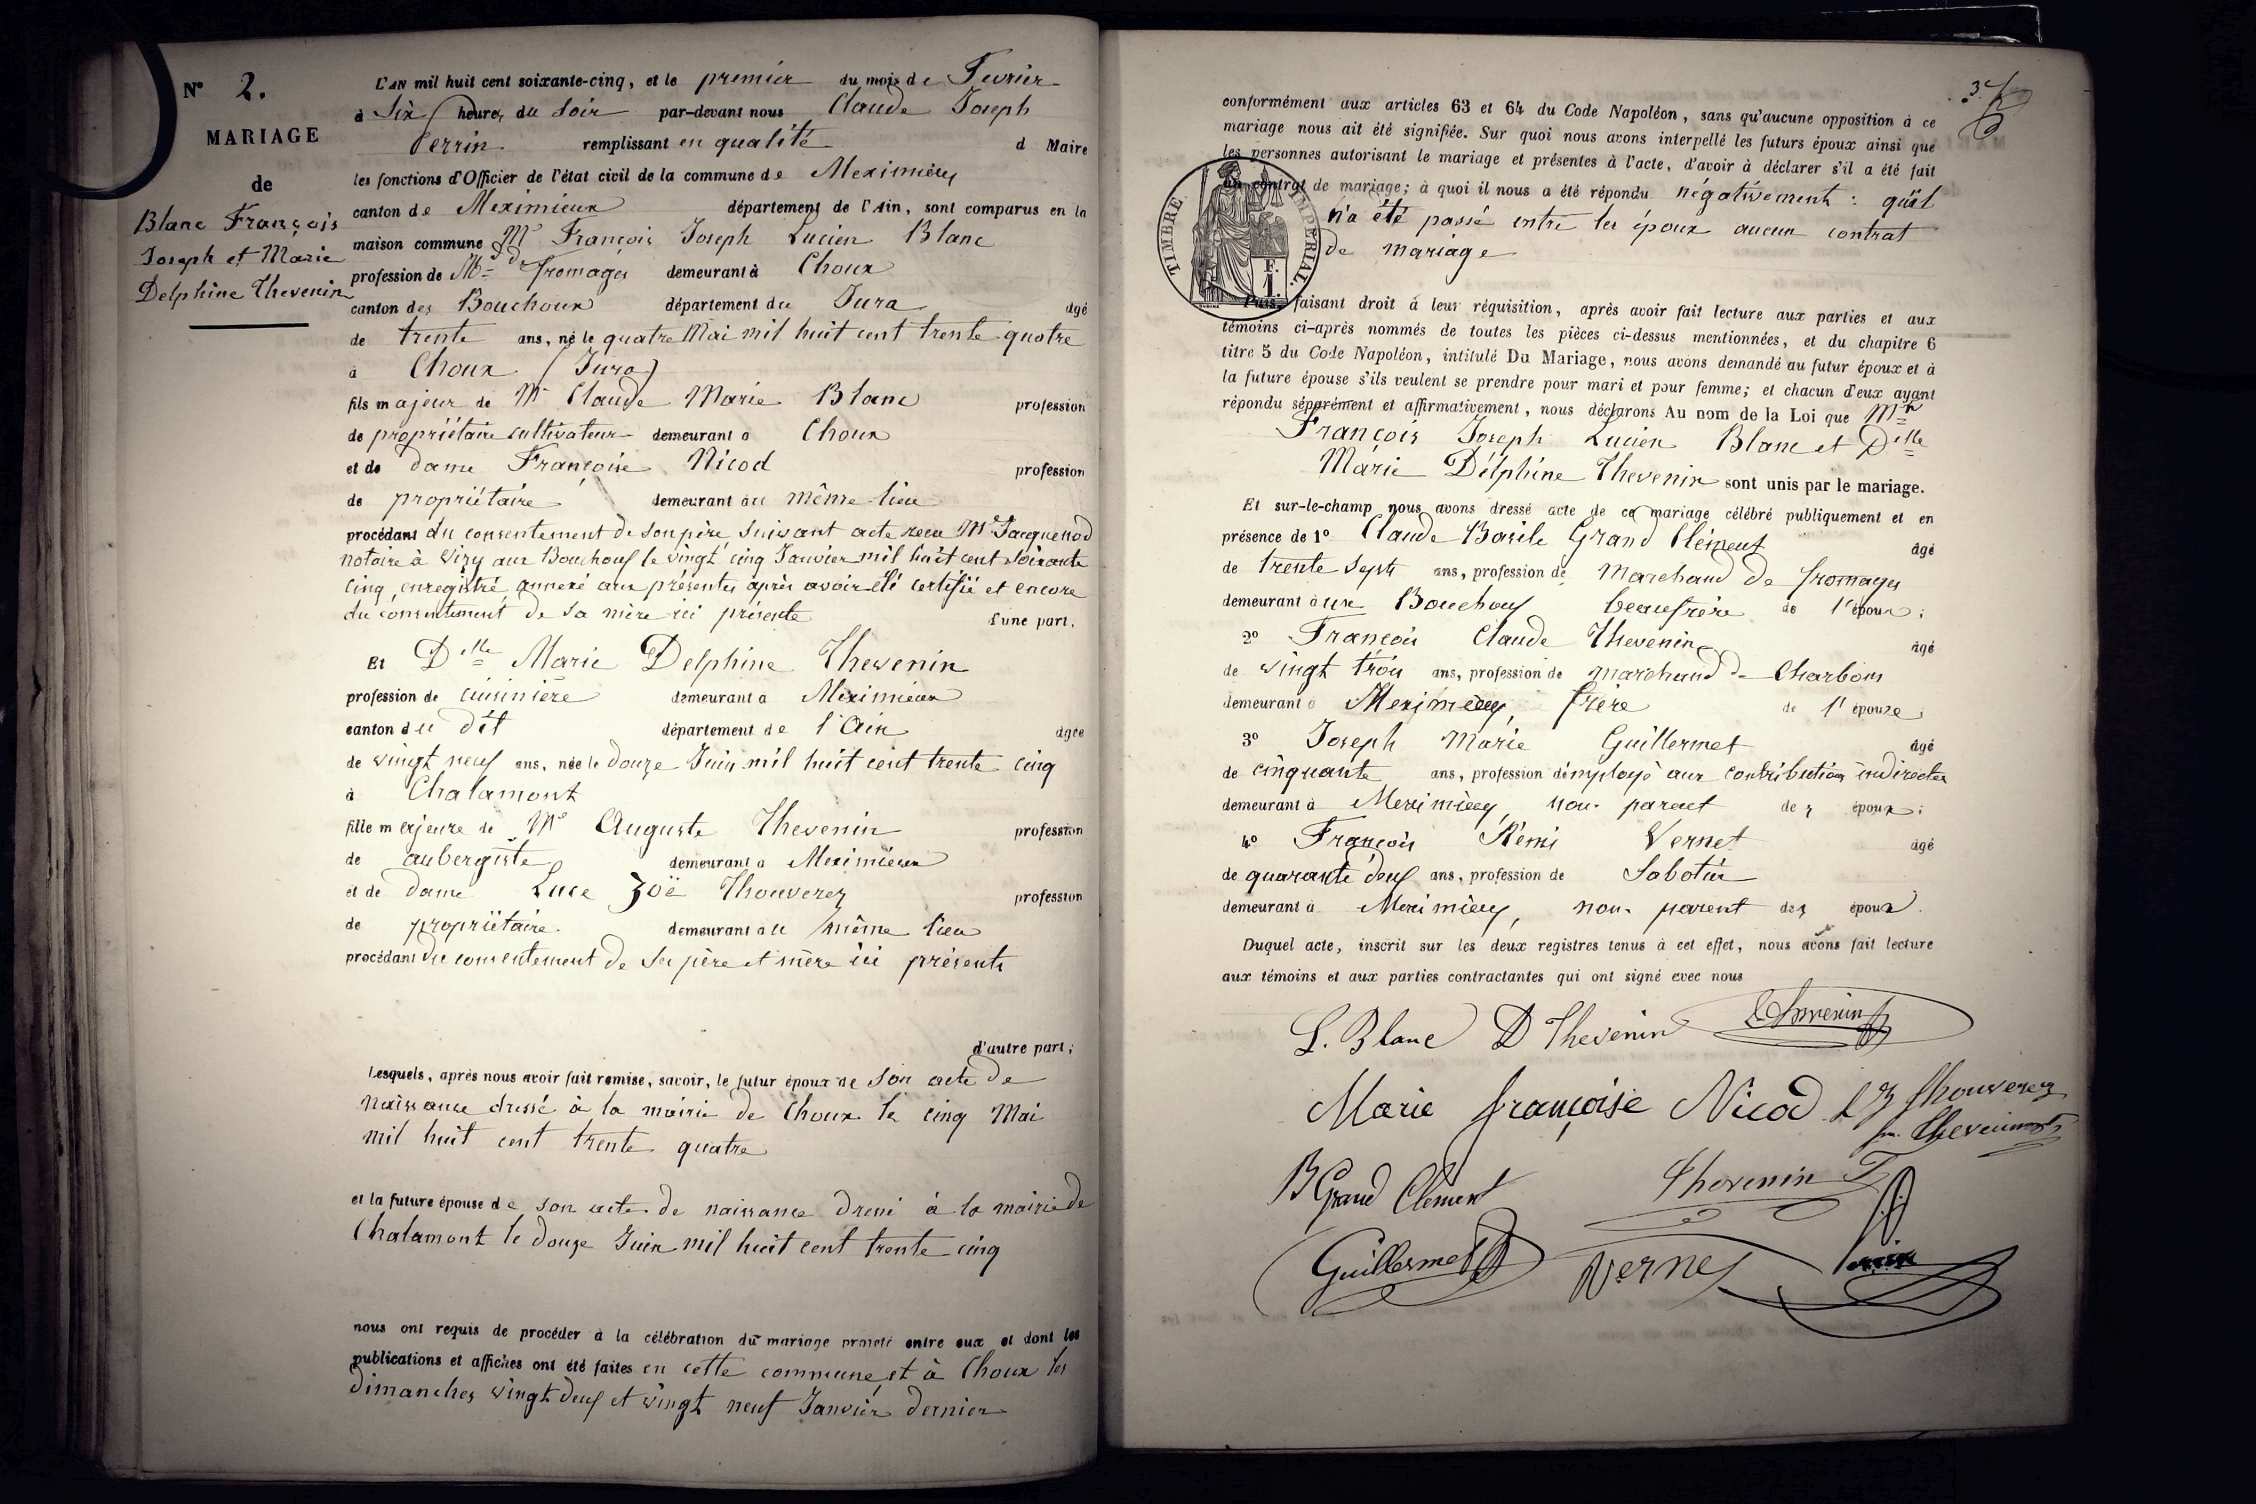 N° 2.
MARIAGE
de
Blanc François
Joseph et Marie
Delphine Thevenin
L'AN mil huit cent soixante-cinq, et le premier du mois de Fevrier
à Six heures du Soir par-devant nous Claude Joseph
Perrin remplissant en qualité d Maire
les fonctions d'Officier de l'état civil de la commune de Meximieux
canton de Meximieux département de l'Ain, sont comparus en la
maison commune Mr François Joseph Lucien Blanc
profession de Md de fromages demeurant à Choux
canton des Bouchoux département du Jura âgé
de trente ans, né le quatre Mai mil huit cent trente quatre
à Choux (Jura)
fils majeur de Mr Claude Marie Blanc profession
de propriétaire cultivateur demeurant à Choux
et de dame Françoise Nicod profession
de propriétaire demeurant au même lieu
procédant du consentement de son père, suivant acte recu Me Jacquenod
notaire à Viry aux Bouchoux le vingt cinq Janvier mil huit cent soixante
cinq, enregistré, annexé aux présentes après avoir été certifié et encore
du consentement de sa mère ici présente d'une part.
Et Delle Marie Delphine Thevenin
profession de cuisinière demeurant à Meximieux
canton du dit département de l'Ain agée
de vingt neuf ans, née le douze Juin mil huit cent trente cinq
à Chalamont
fille majeure de Mr Auguste Thevenin profession
de aubergiste demeurant à Meximieux
et de dame Luce Zoë Thouverez profession
de propriétaire demeurant au même lieu
procédant du consentement de ses père et mère ici présents
d'autre part;
Lesquels, après nous avoir fait remise, savoir, le futur époux de son acte de
naissance dressé à la mairie de Choux le cinq Mai
mil huit cent trente quatre
et la future épouse de son acte de naissance dressé à la mairie de
Chalamont le douze Juin mil huit cent trente cinq
nous ont requis de procéder à la célébration du mariage projeté entre eux et dont les
publications et affiches ont été faites en cette commune et à Choux les
dimanches vingt deux et vingt neuf Janvier dernier
3.
conformément aux articles 63 et 64 du Code Napoléon, sans qu'aucune opposition à ce
mariage nous ait été signifiée. Sur quoi nous avons interpellé les futurs époux ainsi que
les personnes autorisant le mariage et présentes à l'acte, d'avoir à déclarer s'il a été fait
un contrat de mariage; à quoi il nous a été répondu négativement : qu'il
n'a été passé entre les époux aucun contrat
de mariage
TIMBRE IMPÉRIAL.
1 F.
Puis, faisant droit à leur réquisition, après avoir fait lecture aux parties et aux
témoins ci-après nommés de toutes les pièces ci-dessus mentionnées, et du chapitre 6
titre 5 du Code Napoléon, intitulé Du Mariage, nous avons demandé au futur époux et à
la future épouse s'ils veulent se prendre pour mari et pour femme; et chacun d'eux ayant
répondu séparément et affirmativement, nous déclarons Au nom de la Loi que Mr
François Joseph Lucien Blanc et Delle
Marie Délphine Thevenin sont unis par le mariage.
Et sur-le-champ nous avons dressé acte de ce mariage célébré publiquement et en
présence de 1° Claude Basile Grand Clément âgé
de trente sept ans, profession de Marchand de fromages
demeurant aux Bouchoux beaufrère de l'époux;
2° François Claude Thevenin âgé
de vingt trois ans, profession de marchand de Charbons
demeurant à Meximieux, frère de l'épouse;
3° Joseph Marie Guillermet âgé
de cinquante ans, profession d'employé aux contributions indirectes
demeurant à Meximieux, non parent des époux;
4° François Rémi Vernet âgé
de quarante deux ans, profession de Sabotier
demeurant à Meximieux, non parent des époux.
Duquel acte, inscrit sur les deux registres tenus à cet effet, nous avons fait lecture
aux témoins et aux parties contractantes qui ont signé avec nous
L. Blanc D Thevenin Thevenin
Marie françoise Nicod L Z Thouverez
fme Thevenin
B Grand Clement Thevenin F
Guillermet Vernet